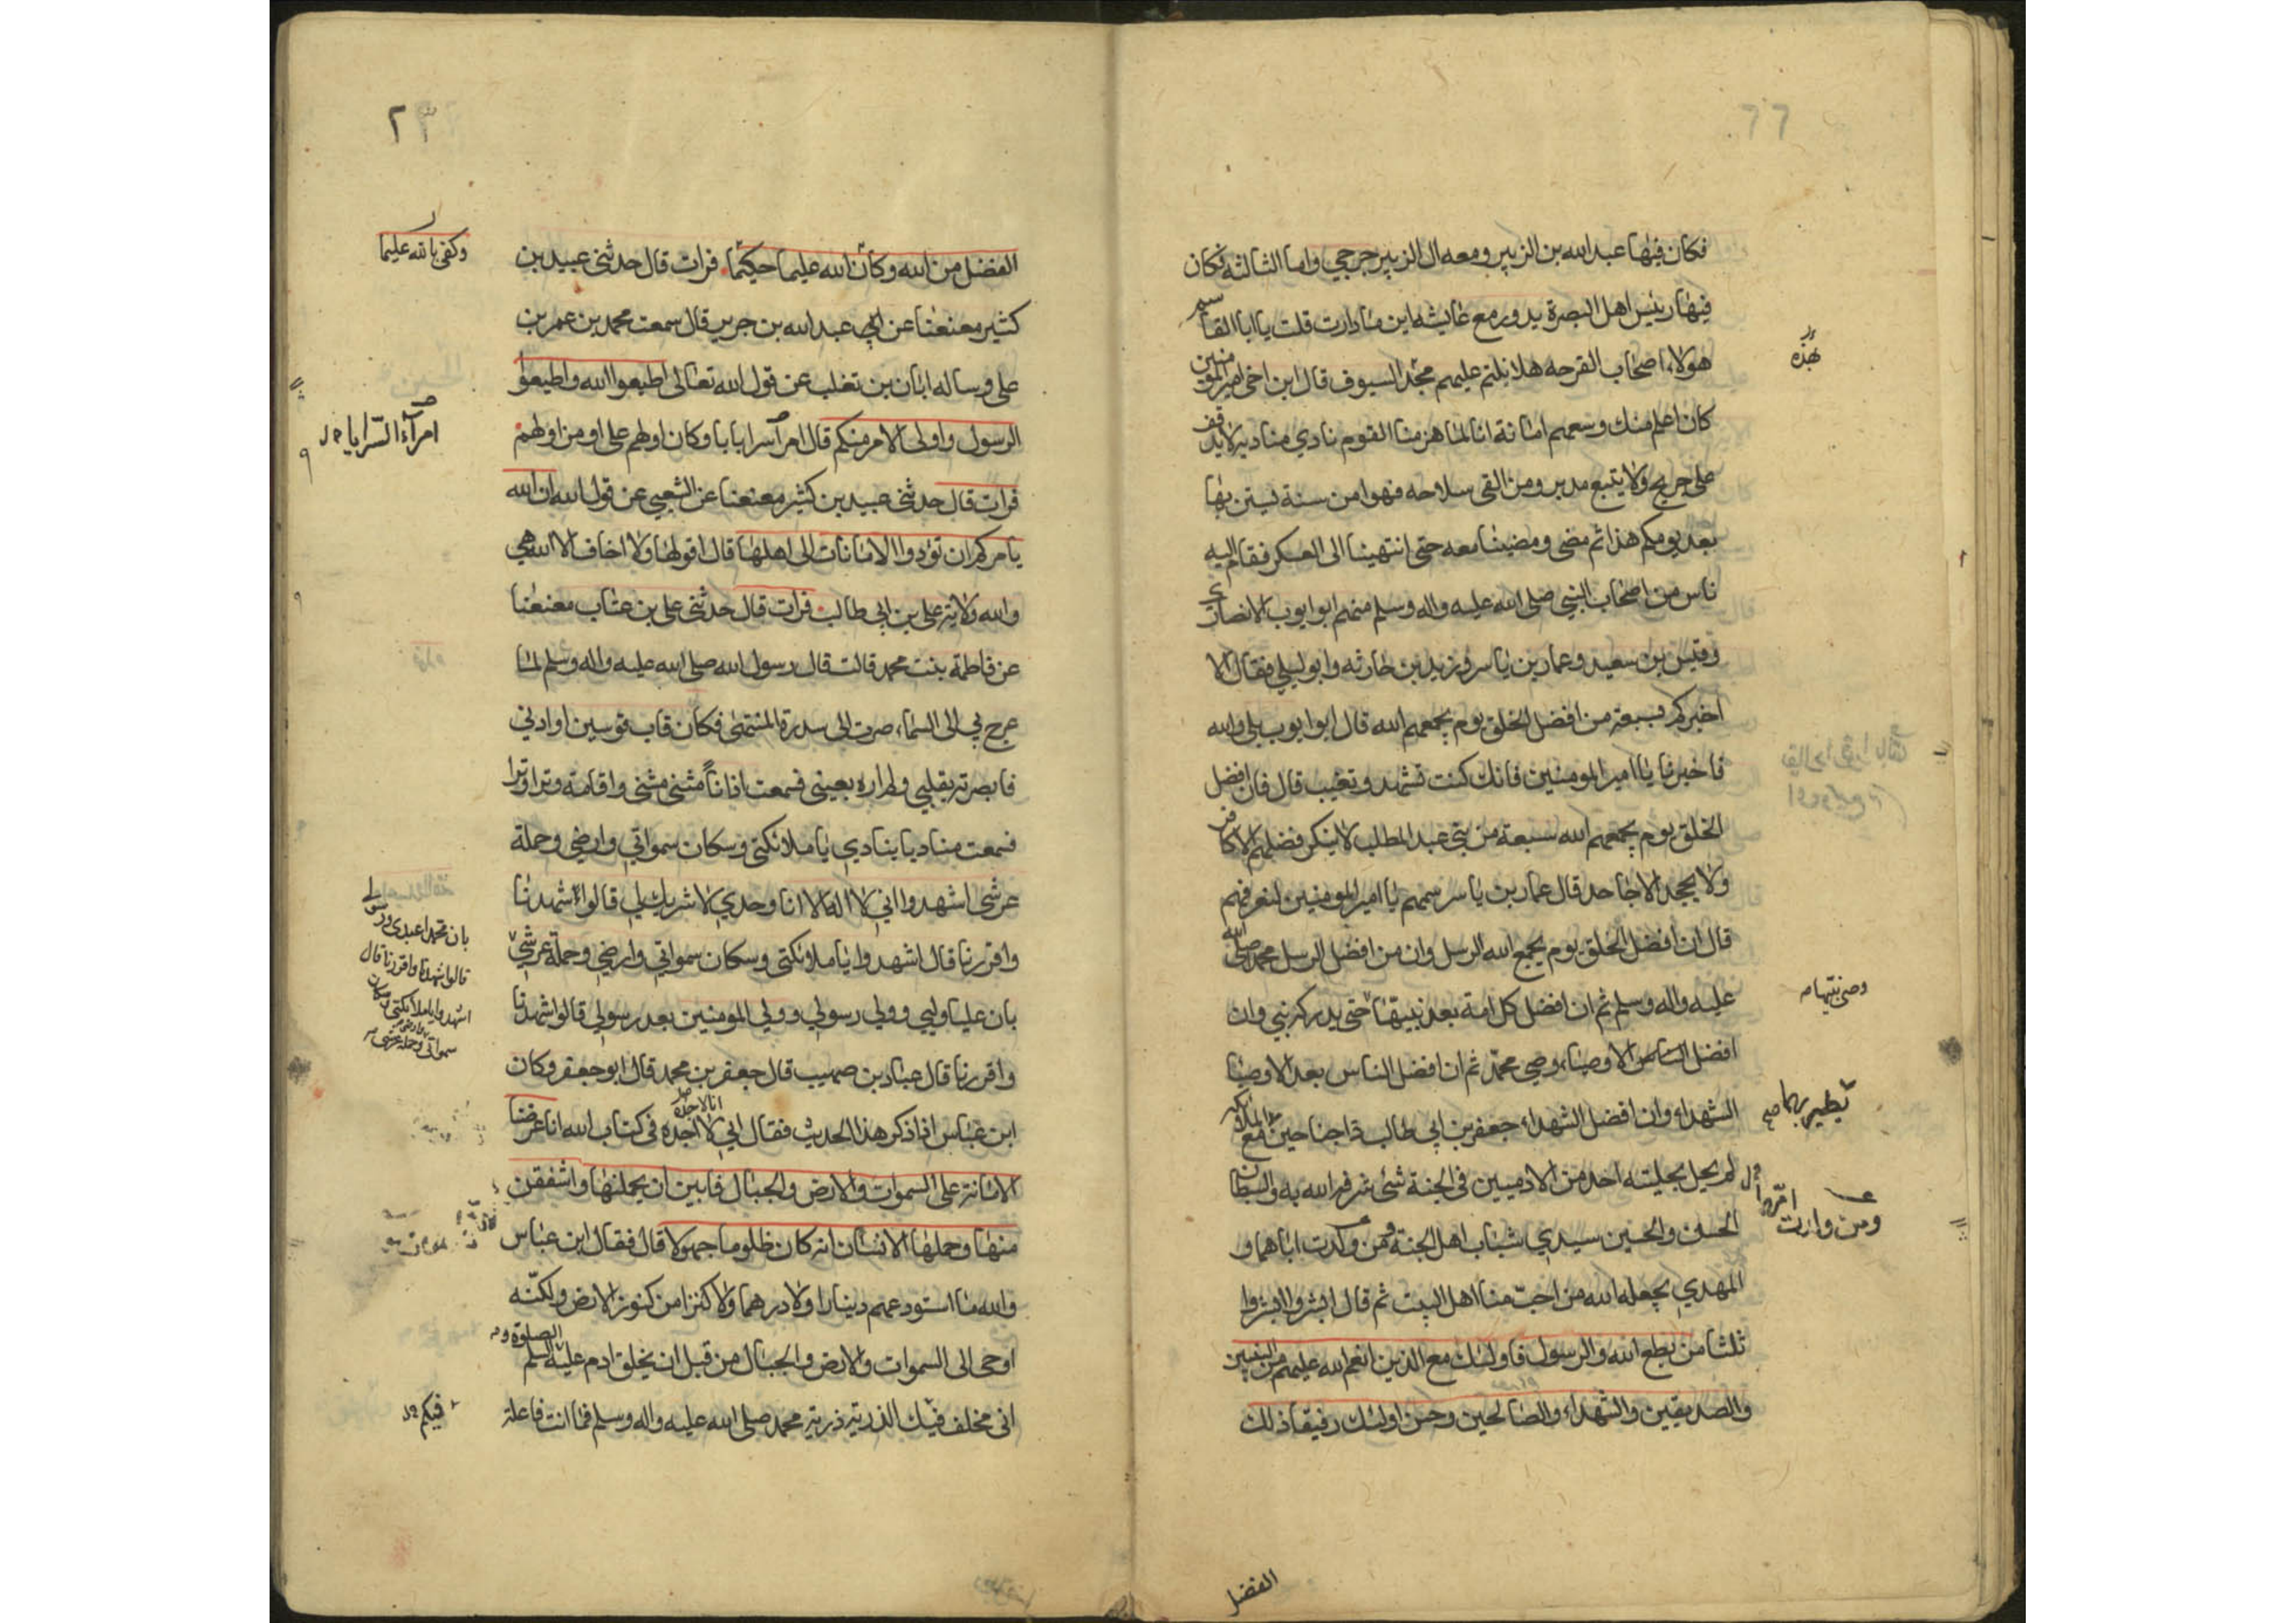 فكان فيها عبد الله بن الزبير ومعه ال الزبير جرحي واما الثالثه فكان
فيها رئيس اهل البصرة يدور مع عايشه اين ما دارت قلت يا ابا القاسم
هولاء اصحاب القرحه هلا نلتم عليهم بهذه السيوف قال ابن اخي امير المؤمنين
بهذه
كان اعلم منك وسعهم امانة انا لما هزمنا القوم نادي مناديه لا يدفف
على جريح ولا يتبع مدبر ومن القى سلاحه فهو امن سنة يستن بها
بعد يومكم هذا ثم مضى ومضينا معه حتى انتهينا الى العسكر فقام اليه
ناس من اصحاب النبي صلى الله عليه واله وسلم منهم ابو ايوب الانصاري
وقيس بن سعيد وعمار بن ياسر وزيد بن حارثه وابو ليلي فقال الا
اخبركم بسبعة من افضل الخلق يوم يجمعهم الله قال ابو ايوب بلي والله
فاخبرنا يا امير المومنين فانك كنت تشهد وتغيب قال فان افضل
الخلق يوم يجمعهم الله سبعة من بني عبد المطلب لا ينكر فضلهم الا كافر
ولا يجحد الا جاحد قال عمار بن ياسر سمهم يا امير المؤمنين لنعرفهم
قال ان افضل الخلق يوم يجمع الله الرسل وان من افضل الرسل محمد صلى الله
عليه واله وسلم ثم ان افضل كل امة بعد نبيها حتى يدركه نبي وان
وصي نبيها
افضل الناس الاوصياء وصي محمد ثم ان افضل الناس بعد الاوصيا
الشهداء وان افضل الشهداء جعفر بن ابي طالب ذا جناحين مع الملائكه
يطير بهما
لم يحل بحليته احد من الادميين في الجنة شئ شرفه الله به والسبطان
الحسن والحسين سيدي شباب اهل الجنة ومن ولدت اباهما و
ومن وارت
المهدي يجعله الله من احب منا اهل البيت ثم قال ابشروا ابشروا
ثلثا من يطع الله والرسول فاولئك مع الذين انعم الله عليهم من النبيين
والصديقين والشهداء والصالحين وحسن اولئك رفيقا ذلك
الفضل
الفضل من الله وكان الله عليما حكيما فرات قال حدثني عبيد بن
وكفى بالله عليما
كثير معنعنا عن ابي عبد الله بن جرير قال سمعت محمد بن عمر بن
علي وساله ابان بن تغلب عن قول الله تعالى اطيعوا الله واطيعوا
الرسول واولى الامر منكم قال امر اسرابابا وكان اولهم علي او من اولهم
امرآء السّرايا
فرات قال حدثني عبيد بن كثير معنعنا عن الشعبي عن قول الله ان الله
يامركم ان تؤدوا الامانات الى اهلها قال اقولها ولا اخاف الا الله هي
والله ولاية علي بن ابي طالب فرات قال حدثني علي بن عتاب معنعنا
عن فاطمة بنت محمد قالت قال رسول الله صلى الله عليه واله وسلم لما
عرج بي الى السماء صرت الى سدرة المنتهى فكان قاب قوسين او ادنى
فابصرته بقلبي ولم اره بعيني فسمعت اذانا مثنى مثنى واقامة وترا وترا
فسمعت مناديا ينادي يا ملائكتي وسكان سمواتي وارضي وحملة
عرشي اشهدوا اني لا اله الا انا وحدي لا شريك لي قالوا شهدنا
واقررنا قال اشهدوا يا ملائكتي وسكان سمواتي وارضي وحملة عرشي
بان محمدا عبدي ورسولي
قالوا شهدنا واقررنا قال
اشهدوا يا ملائكتي وسكان
سمواتي وارضي وحملة عرشي
بان عليا وليي وولي رسولي وولي المومنين بعد رسولي قالوا شهدنا
واقررنا قال عباد بن صهيب قال جعفر بن محمد قال ابو جعفر وكان
ابن عباس اذا ذكر هذا الحديث فقال اني لا اجده في كتاب الله انا عرضنا
انا لاجده
الامانة على السموات والارض والجبال فابين ان يحملنها واشفقن
منها وحملها الانسان انه كان ظلوما جهولا قال فقال ابن عباس
والله ما استودعهم دينارا ولا درهما ولا كنزا من كنوز الارض ولكنّه
اوحى الى السموات والارض والجبال من قبل ان يخلق ادم عليه الصلوة والسلم
اني مخلف فيك الذرية ذرية محمد صلى الله عليه واله وسلم فما انت فاعلة
فيكم